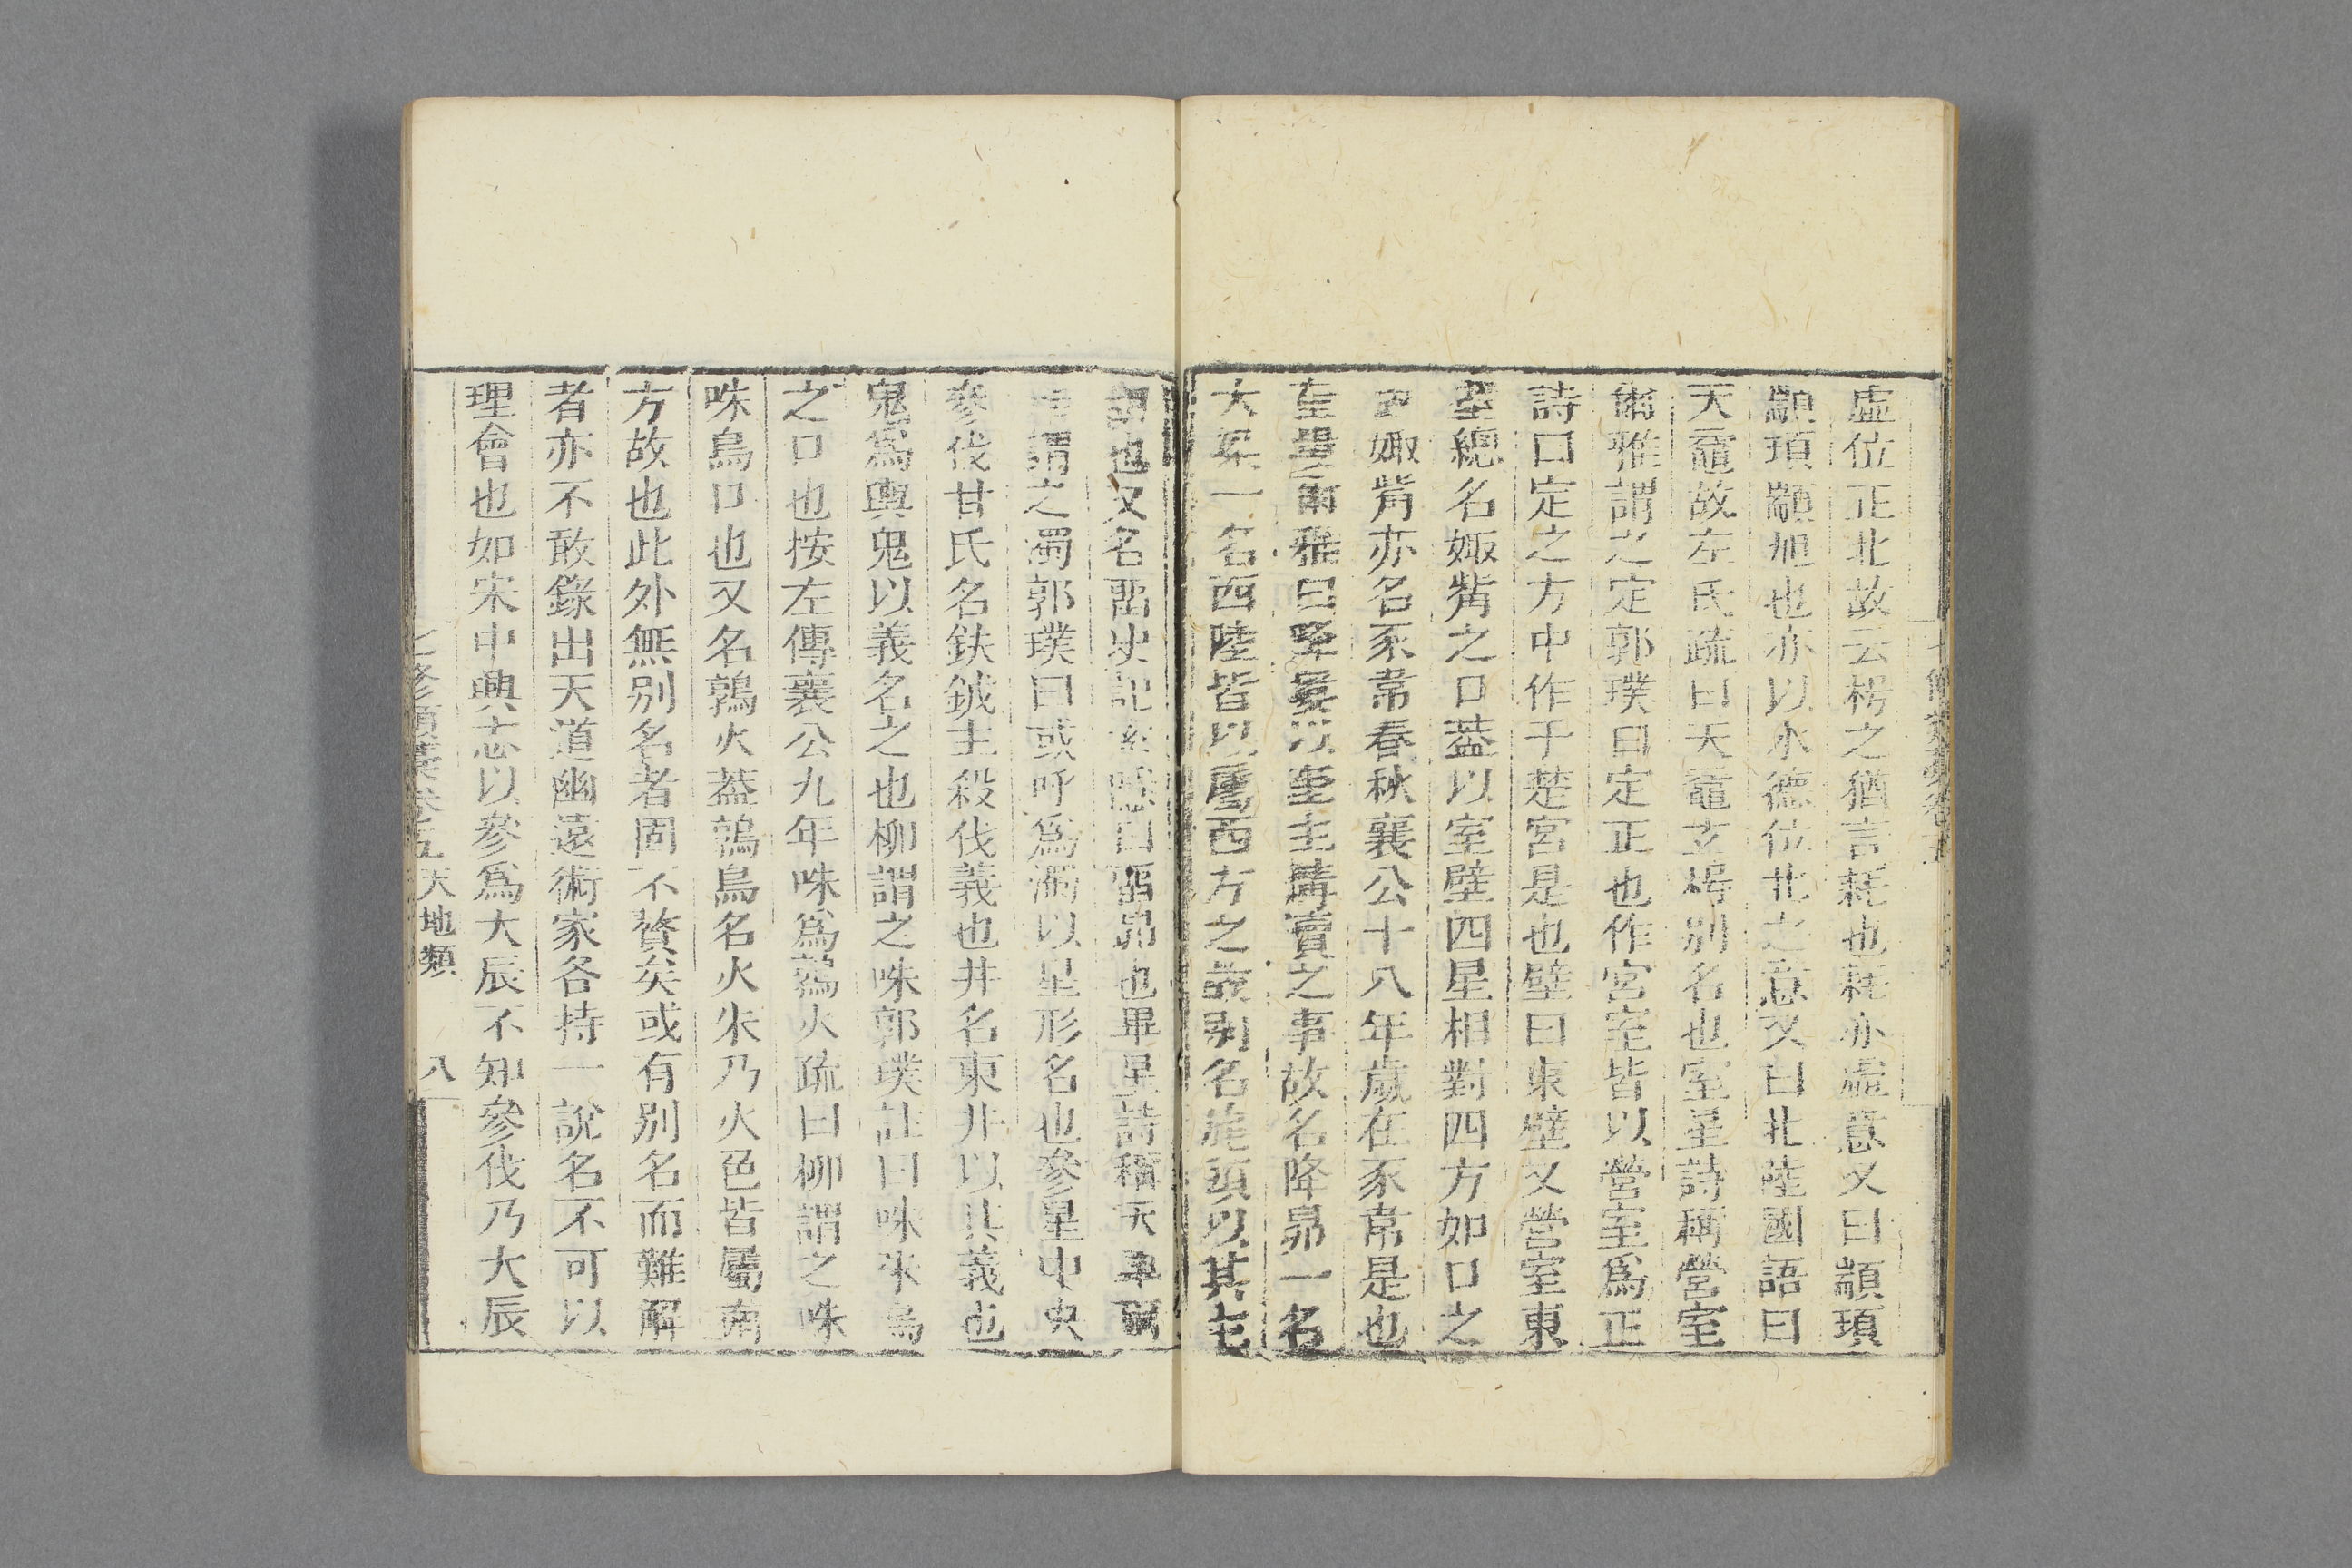 虛位正北故云枵之猶言耗也耗亦虛意又曰顓頊
顓頊顓旭也亦以水德位北之意又曰北陸國語曰
天黿故左氏疏曰天黿玄枵别名也室星詩稱營室
爾雅謂之定郭璞曰定正也作宮室皆以營室爲正
詩曰定之方中作于楚宮是也壁曰東壁又營室東
壁總名娵觜之口葢以室壁四星相對四方如口之
娵觜亦名豕韋春秋襄公十八年歲在豕韋是也
奎星爾雅曰降婁以奎主溝瀆之事故名降昴一名
大梁一名西陸皆以屬西方之義别名旄頭以其
也又名畱史記索隱曰畱昴也畢星詩稱天畢爾
謂之濁郭璞曰或呼爲濁以星形名也參星中央
參伐甘氏名鈇鉞主殺伐義也井名東井以其義也
鬼爲輿鬼以義名之也柳謂之咮郭璞註曰咮朱鳥
之口也按左傳襄公九年咮爲鶉火疏曰柳謂之咮
咮鳥口也又名鶉火葢鶉鳥名火朱乃火色皆屬南
方故也此外無别名者固不贅矣或有别名而難解
者亦不敢錄出天道幽遠術家各持一說名不可以
理會也如宋中興志以參爲大辰不知參伐乃大辰
七修類藁卷五 天地類 八